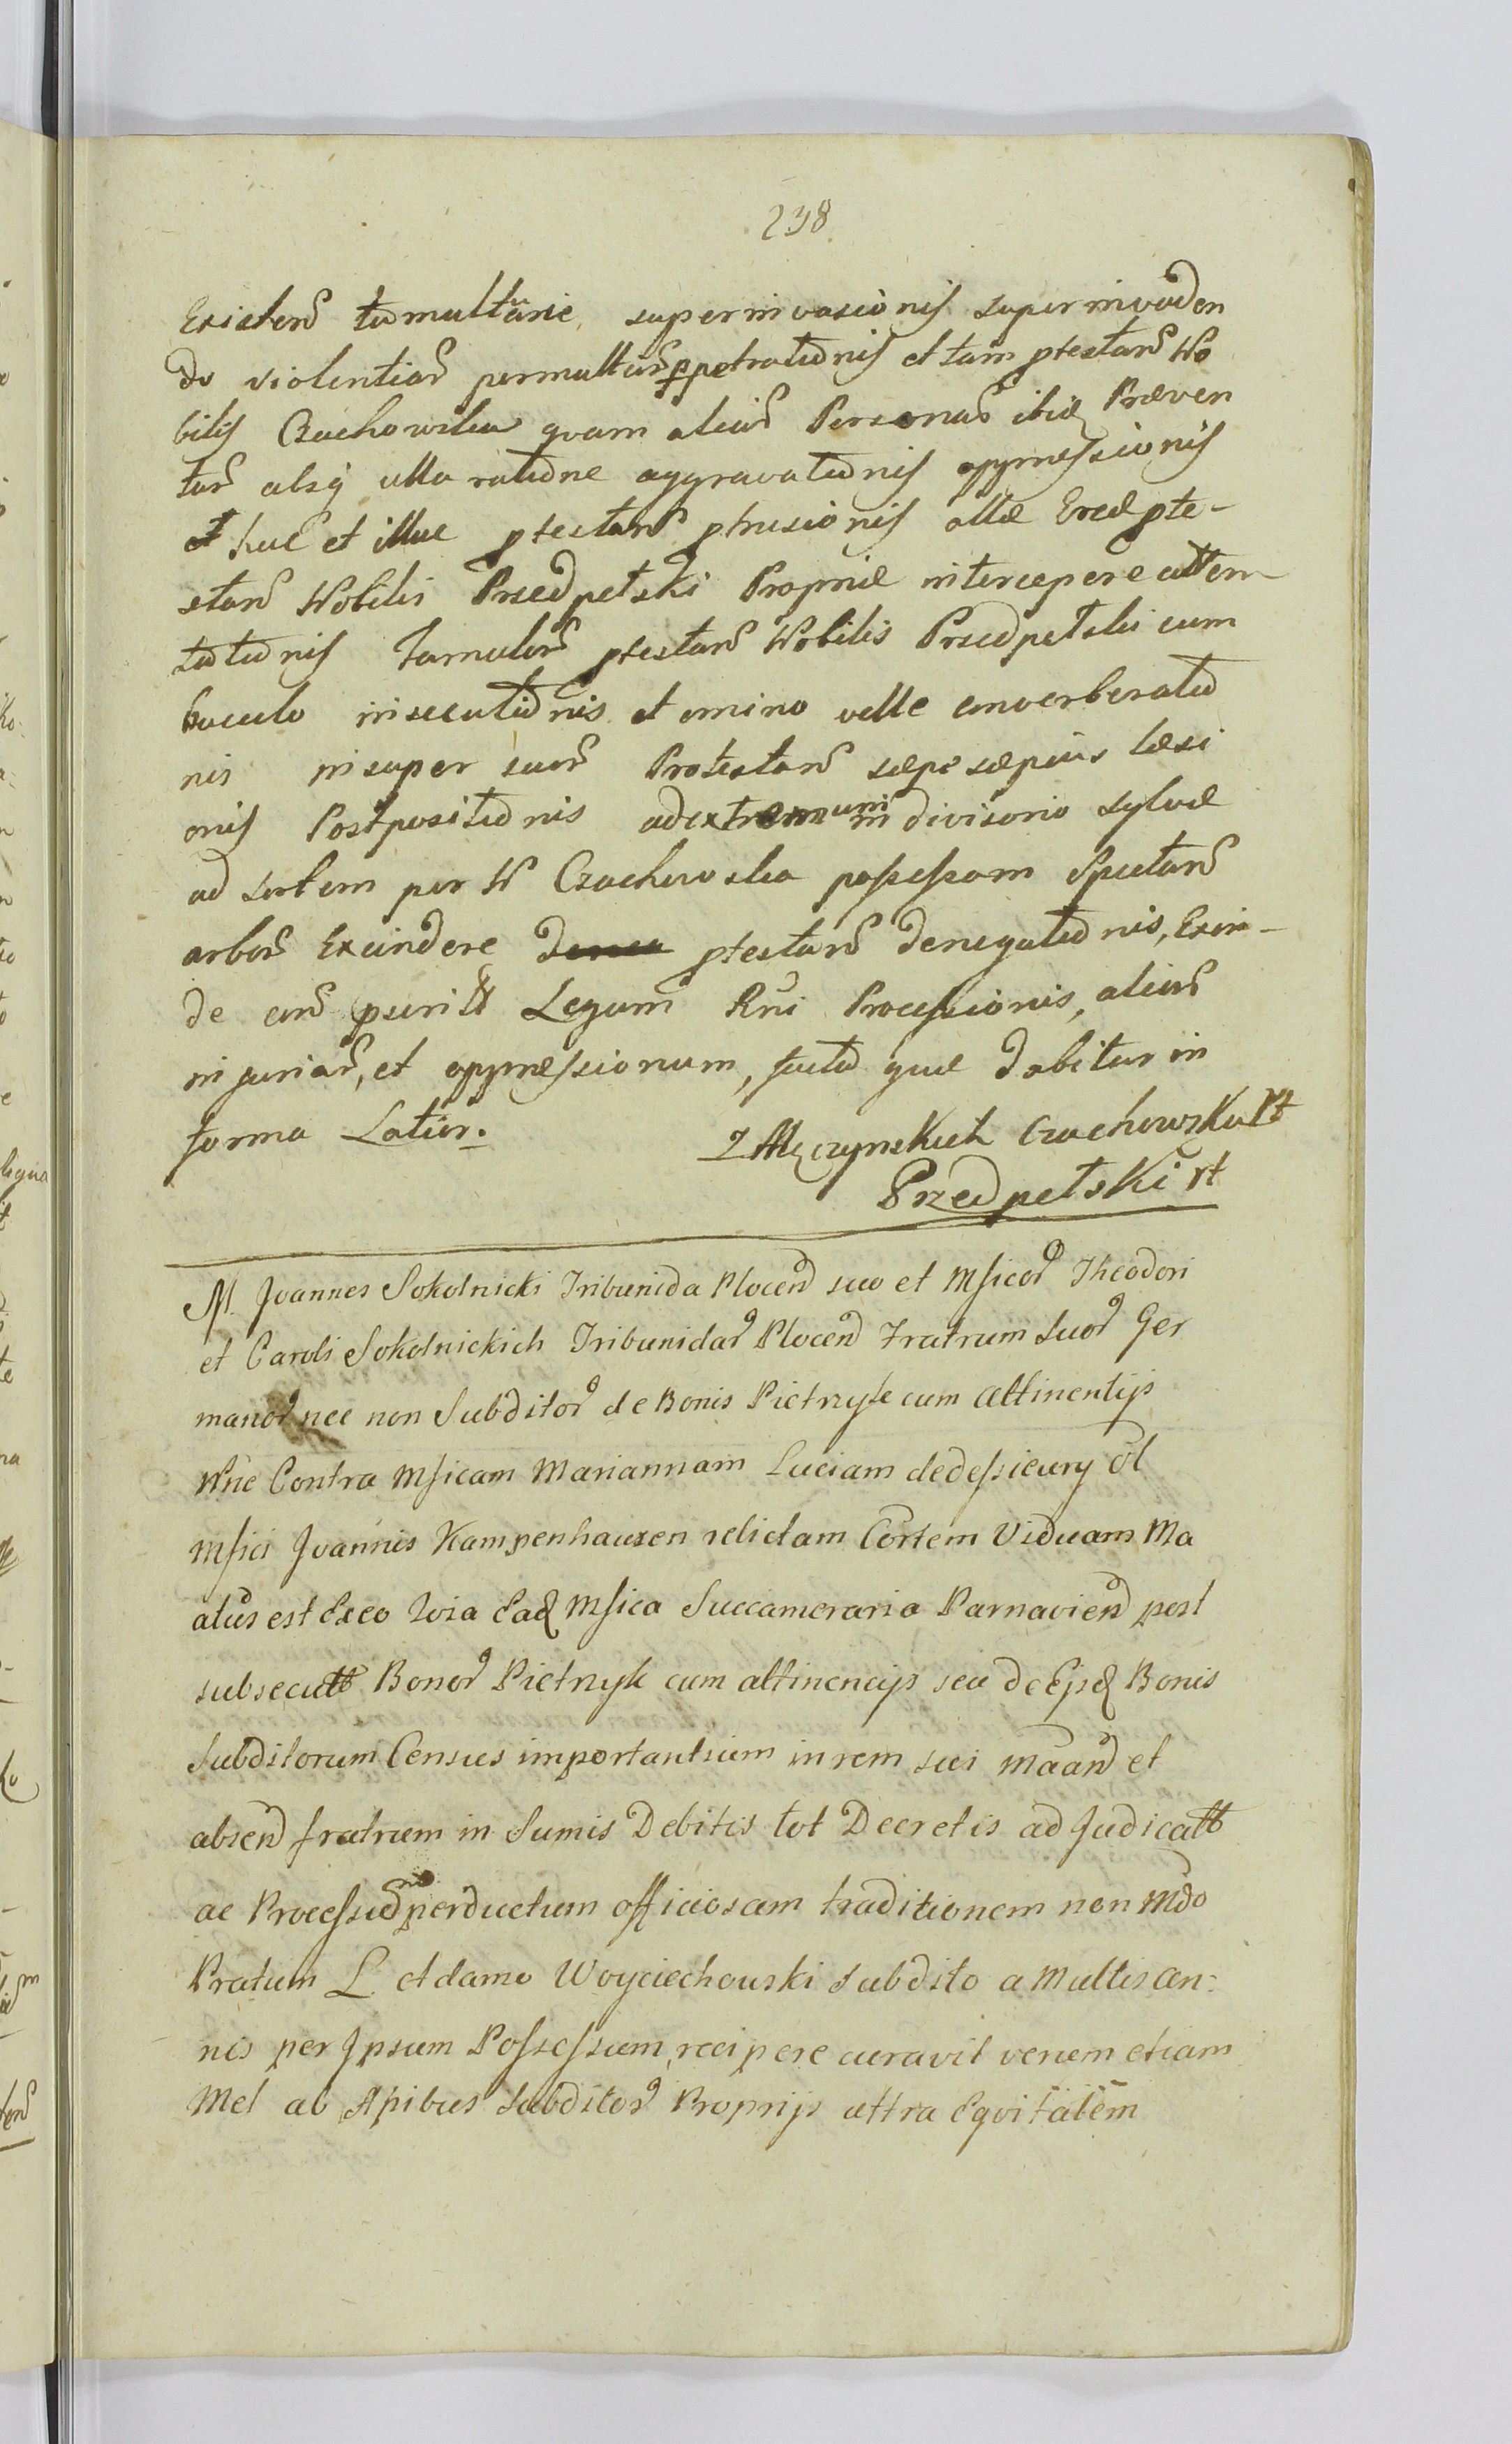 238
Existen tumultarie, superinvasionis superinvaden
do violentiar permultar perpetrationis et tam ptestan No
bilis Czachowska quam aliar Personar ibid Præven
tar absq ulla ratione aggravationis oppressionis
et huc et illuc ptestan ptrusionis allæ
stan Nobilis Przedpełski Propriæ intercepere atten-
tationis famulor ptestan Nobilis Przedpełski cum
baculo insecutionis et omino velle converberatio
nis insuper suor Protestan sæpe sæpius læsi
onis Postpositionis ad extremum in divisorio sylvæ
ad sortem per N Czachowska possessam Spectan
arbor Excindere ptestan denegationis, Exin-
de Legum Rni Processionis, aliar
injuriar, et oppressionum, factu quæ dabitur in
forma Latior.
Z Męczynskich Czachowska
Przedpełski
M Joannes Sokolnicki Tribunida Plocen suo et Mficor Theodori
et Caroli Sokolnickich Tribunidar Plocen Fratrum Suor Ger
manor nec non Subditor de Bonis Pietrzyk cum attinentijs
Nne Contra Mficam Mariannam Luciam dedessieury ol
Mfici Joannis Kampenhauzen relictam Cortem Viduam Ma
atus est Exeo Ead Mfica Succameraria Parnavien post
subsecutt Bonor Pietrzyk cum attinencijs seu de Bonis
Subditorum Census importantium in rem sui Maan et
absen fratrum in Sumis Debitis tot Decretis adjudicatt
ac Processu perductum officiosam traditionem non Mdo
Pratum L Adamo Woyciechowski Subdito a Multis an:
nis per Jpsum Possessum, recipere curavit verum etiam
Mel ab Apibus Subditor Proprijs ultra Eqvitatem